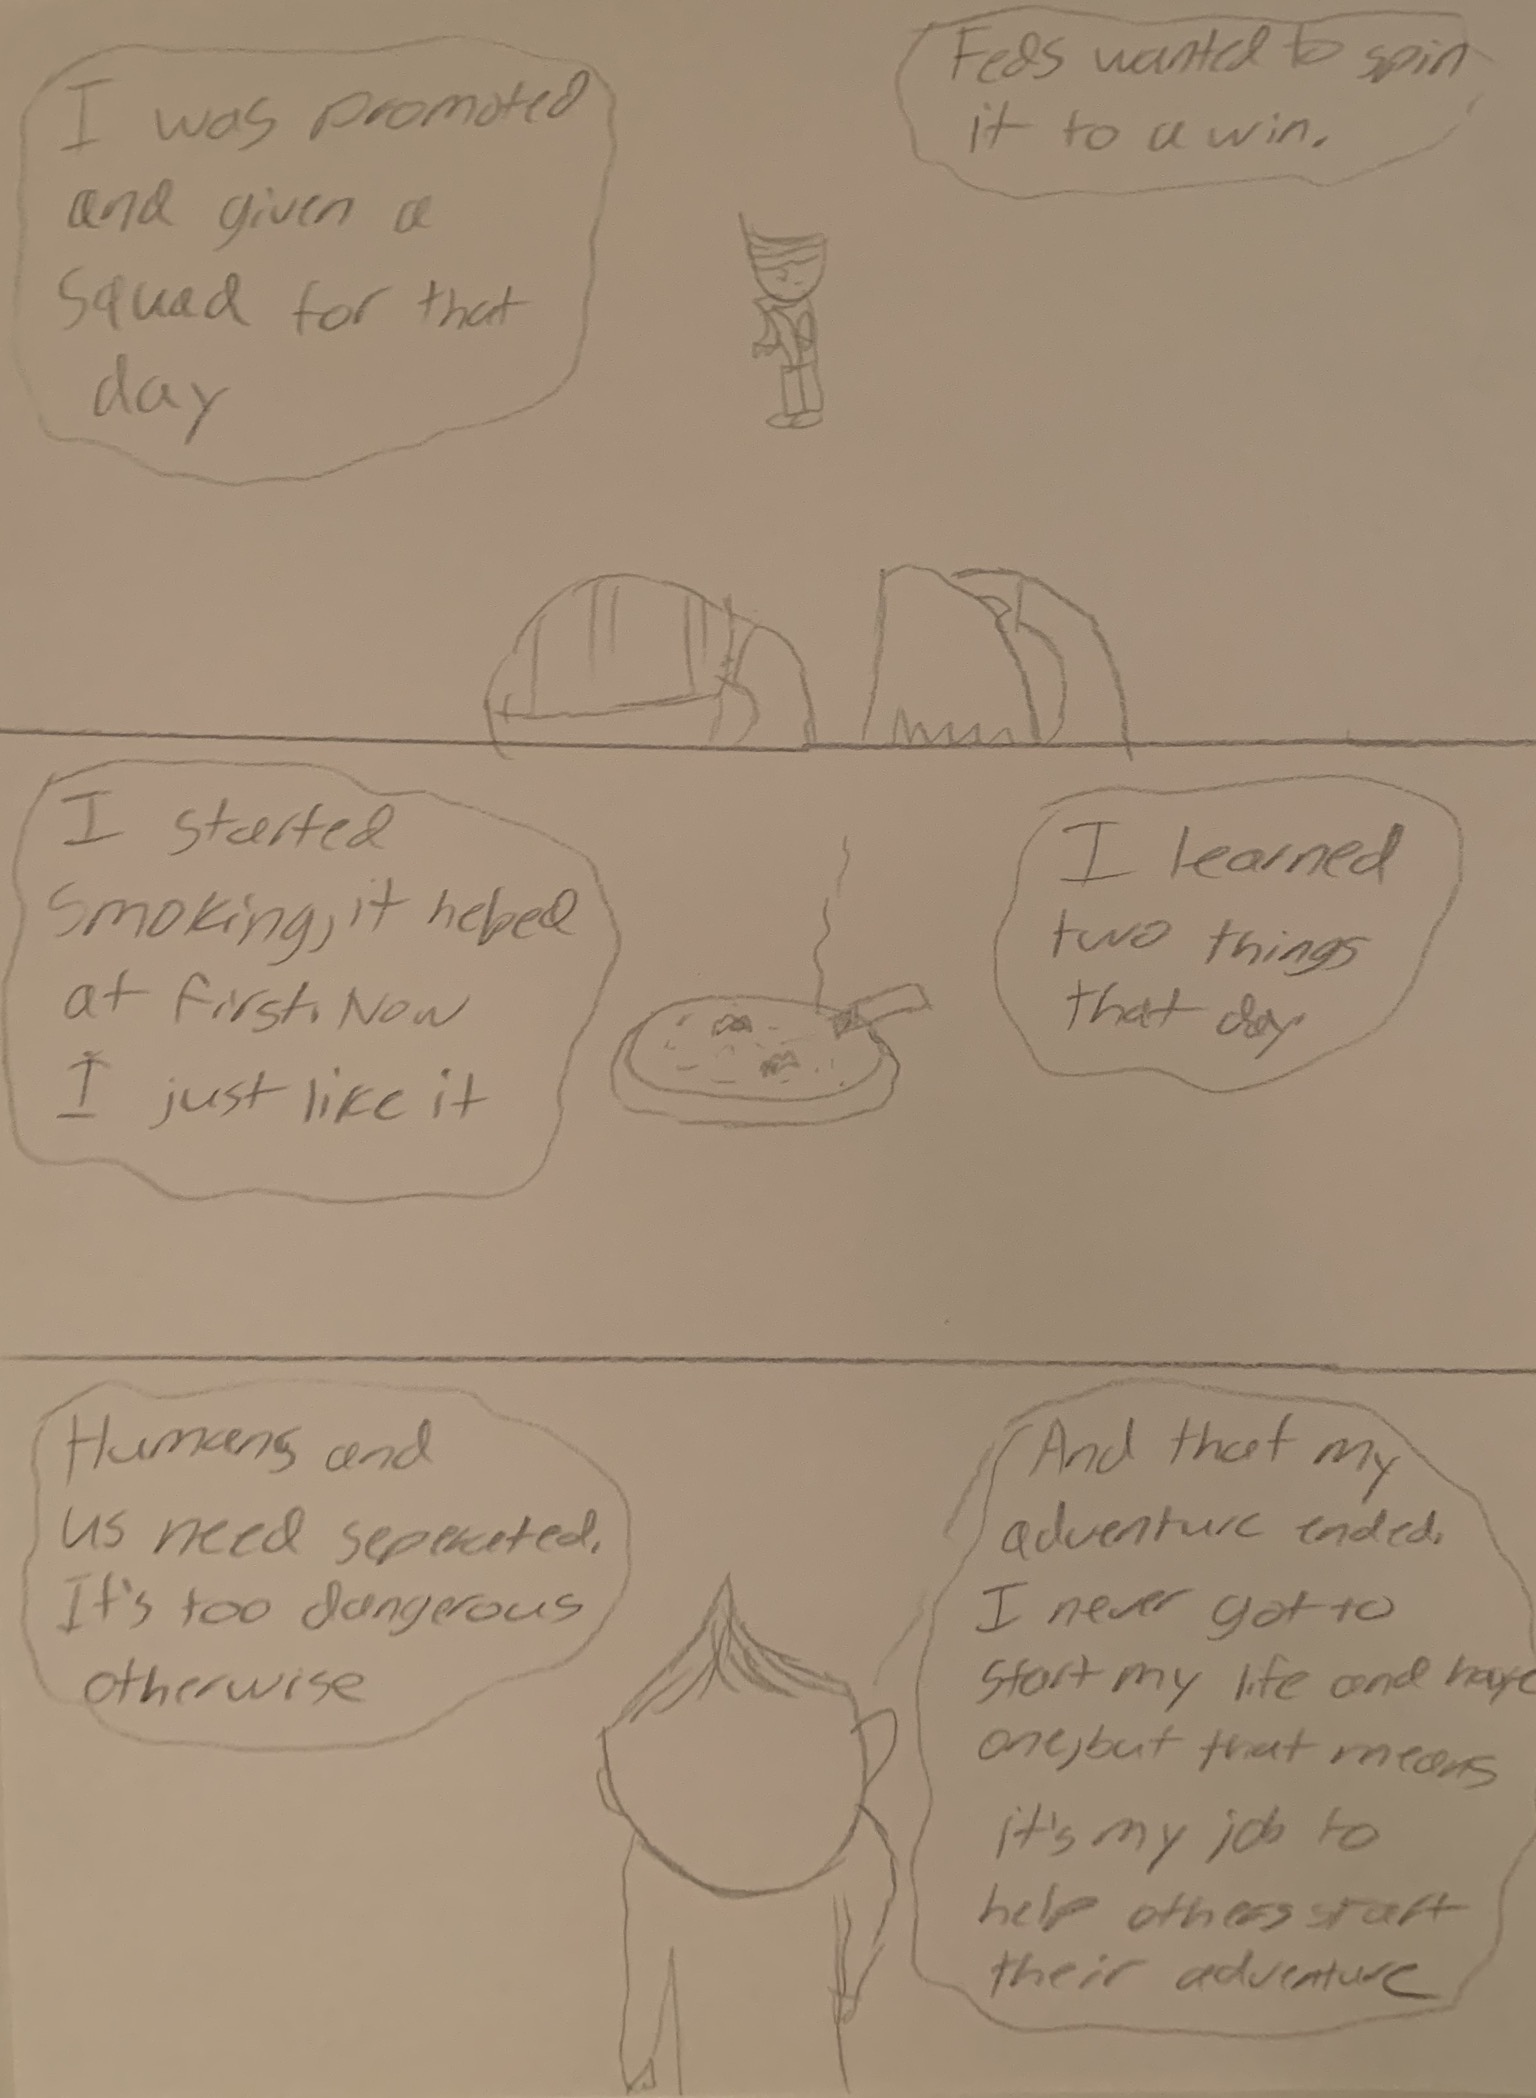 I was promoted
and given a
squad for that
day
Feds wanted to spin
it to a win.
I started
smoking, it helped
at first. Now
I just like it
I learned
two things
that day
Humans and
us need seperated.
It's too dangerous
otherwise
And that my
adventure ended.
I never got to
start my life and have
one, but that means
it's my job to
help others start
their adventure